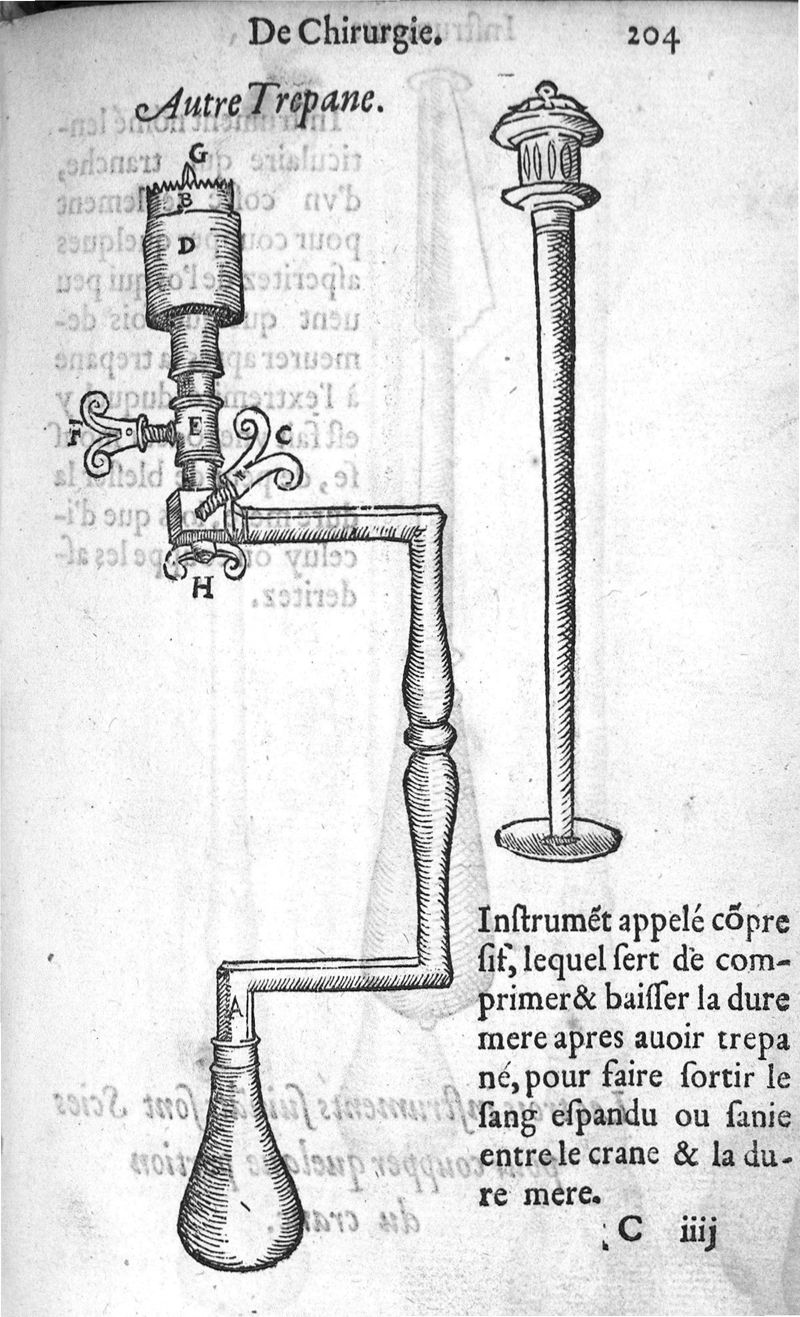 De Chirurgie. 204
Autre Trepane.
G
B
D
F
E
C
H
A
Inſtrumẽt appelé cõpre
ſif, lequel ſert de com-
primer & baiſſer la dure
mere apres auoir trepa
né, pour faire ſortir le
ſang eſpandu ou ſanie
entre le crane & la du-
re mere.
C iiij